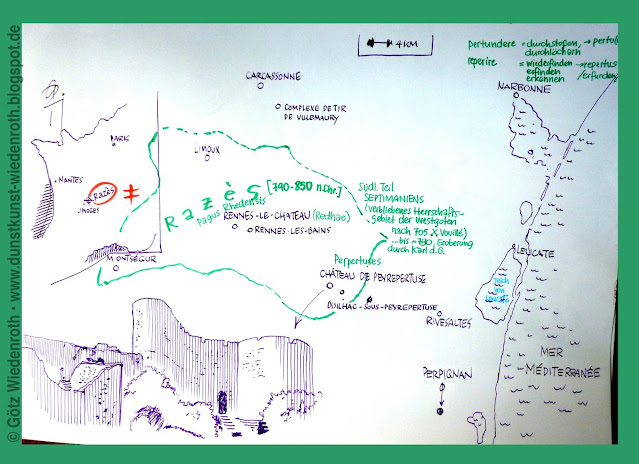 © Götz Wiedenroth - www.dunstkunst-wiedenroth.blogspot.de
4 KM
pertundere = durchstoßen, → pertu
durchlöchern
reperire = wiederfinden → repertus
erfinden /erfunden
erkennen
CARCASSONNE
NARBONNE
COMPLEXE DE TIR
DE VILLEMAURY
PARIS
LIMOUX
NANTES
Razès ≠
LIMOGES
Razès [790-850 n.Chr.]
Pagus Rhedensis
RENNES-LE-CHATEAU (Redhae)
RENNES-LES-BAINS
Südl. Teil
SEPTIMANIENS
(verbliebenes Herrschafts-
gebiet der Westgoten
nach 705 X Vouillé)
...bis ~790, Eroberung
durch Karl d.G.
MONTSÉGUR
LEUCATE
Perpertuses
CHÂTEAU DE PEYREPERTUSE
DUILHAC-SOUS-PEYREPERTUSE
Teich
von
Leucate
RIVESALTES
MER
MÉDITERRANÉE
PERPIGNAN